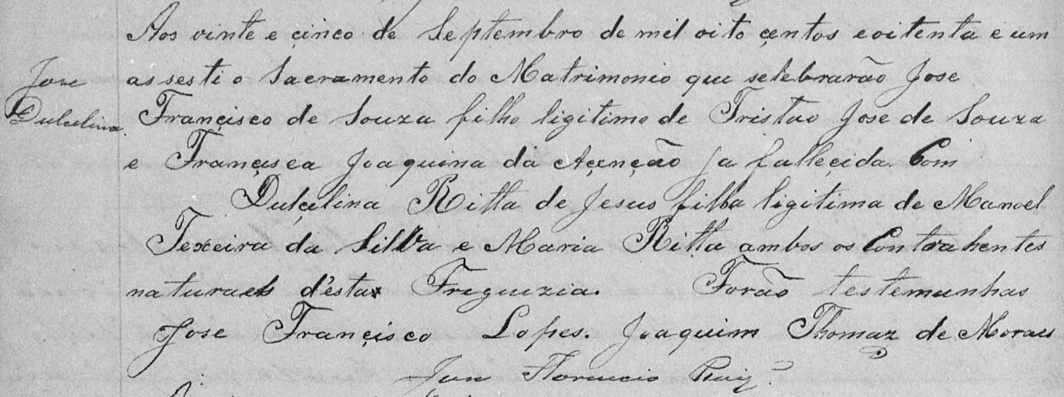 Aos vinte e çinco de Septembro de mil oito çentos e oitenta e um
Jose
assesti o Sacramento do Matrimonio que selebrarão Jose
Dulcelina.
Françisco de Souza filho ligitimo de Tristão Jose de Souza
e Françisca Joaquina da Açenção ja falleçida. Com
Dulçelina Ritta de Jesus filha ligitima de Manoel
Texeira da Silva e Maria Ritta ambos os Contrahentes
naturaes d'esta Friguezia. Forão testemunhas
Jose Françisco Lopes. Joaquim Thomaz de Moraes
Florencio Ruiz